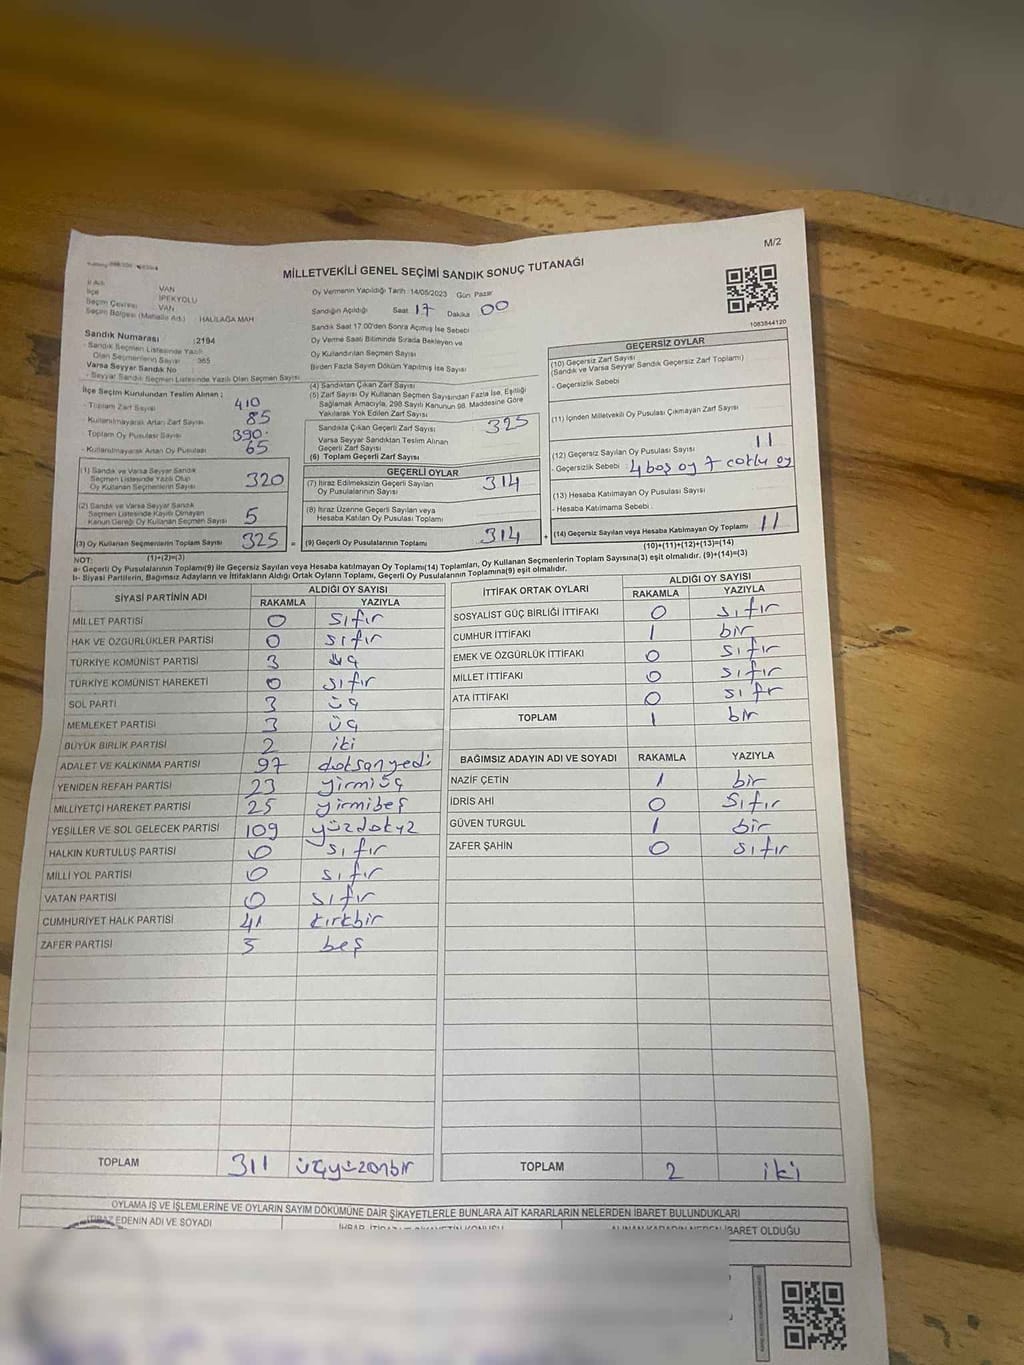 M/2
MİLLETVEKİLİ GENEL SEÇİMİ SANDIK SONUÇ TUTANAĞI
1083844120
İl Adı : VAN
İlçe : İPEKYOLU
Seçim Çevresi : VAN
Seçim Bölgesi (Mahalle Adı) : HALİLAĞA MAH
Sandık Numarası : 2194
- Sandık Seçmen Listesinde Yazılı
Olan Seçmenlerin Sayısı : 365
Varsa Seyyar Sandık No
- Seyyar Sandık Seçmen Listesinde Yazılı Olan Seçmen Sayısı
İlçe Seçim Kurulundan Teslim Alınan ;
- Toplam Zarf Sayısı 410
- Kullanılmayarak Artan Zarf Sayısı 85
Toplam Oy Pusulası Sayısı 390
- Kullanılmayarak Artan Oy Pusulası 65
(1) Sandık ve Varsa Seyyar Sandık
Seçmen Listesinde Yazılı Olup
Oy Kullanan Seçmenlerin Sayısı 320
(2) Sandık ve Varsa Seyyar Sandık
Seçmen Listesinde Kayıtlı Olmayan
Kanun Gereği Oy Kullanan Seçmen Sayısı 5
(3) Oy Kullanan Seçmenlerin Toplam Sayısı 325 =
(1)+(2)=(3)
Oy Vermenin Yapıldığı Tarih :14/05/2023 Gün Pazar
Sandığın Açıldığı Saat 17 Dakika 00
Sandık Saat 17.00'den Sonra Açmış İse Sebebi
Oy Verme Saati Bitiminde Sırada Bekleyen ve
Oy Kullandırılan Seçmen Sayısı
Birden Fazla Sayım Döküm Yapılmış İse Sayısı
(4) Sandıktan Çıkan Zarf Sayısı
(5) Zarf Sayısı Oy Kullanan Seçmen Sayısından Fazla İse, Eşitliği
Sağlamak Amacıyla, 298 Sayılı Kanunun 98. Maddesine Göre
Yakılarak Yok Edilen Zarf Sayısı
Sandıkta Çıkan Geçerli Zarf Sayısı 325
Varsa Seyyar Sandıktan Teslim Alınan
Geçerli Zarf Sayısı
(6) Toplam Geçerli Zarf Sayısı
GEÇERLİ OYLAR
(7) İtiraz Edilmeksizin Geçerli Sayılan
Oy Pusulalarının Sayısı 314
(8) İtiraz Üzerine Geçerli Sayılan veya
Hesaba Katılan Oy Pusulası Toplamı
(9) Geçerli Oy Pusulalarının Toplamı 314 +
GEÇERSİZ OYLAR
(10) Geçersiz Zarf Sayısı
(Sandık ve Varsa Seyyar Sandık Geçersiz Zarf Toplamı)
- Geçersizlik Sebebi
(11) İçinden Milletvekili Oy Pusulası Çıkmayan Zarf Sayısı
(12) Geçersiz Sayılan Oy Pusulası Sayısı 11
- Geçersizlik Sebebi : 4 boş oy 7 çoklu oy
(13) Hesaba Katılmayan Oy Pusulası Sayısı
- Hesaba Katılmama Sebebi :
(14) Geçersiz Sayılan veya Hesaba Katılmayan Oy Toplamı 11
(10)+(11)+(12)+(13)=(14)
NOT:
a- Geçerli Oy Pusulalarının Toplamı(9) ile Geçersiz Sayılan veya Hesaba katılmayan Oy Toplamı(14) Toplamları, Oy Kullanan Seçmenlerin Toplam Sayısına(3) eşit olmalıdır. (9)+(14)=(3)
b- Siyasi Partilerin, Bağımsız Adayların ve İttifakların Aldığı Ortak Oyların Toplamı, Geçerli Oy Pusulalarının Toplamına(9) eşit olmalıdır.
SİYASİ PARTİNİN ADI ALDIĞI OY SAYISI
RAKAMLA YAZIYLA
MİLLET PARTİSİ 0 sıfır
HAK VE ÖZGÜRLÜKLER PARTİSİ 0 sıfır
TÜRKİYE KOMÜNİST PARTİSİ 3 üç
TÜRKİYE KOMÜNİST HAREKETİ 0 sıfır
SOL PARTİ 3 üç
MEMLEKET PARTİSİ 3 üç
BÜYÜK BİRLİK PARTİSİ 2 iki
ADALET VE KALKINMA PARTİSİ 97 doksanyedi
YENİDEN REFAH PARTİSİ 23 yirmiüç
MİLLİYETÇİ HAREKET PARTİSİ 25 yirmibeş
YEŞİLLER VE SOL GELECEK PARTİSİ 109 yüzdokuz
HALKIN KURTULUŞ PARTİSİ 0 sıfır
MİLLİ YOL PARTİSİ 0 sıfır
VATAN PARTİSİ 0 sıfır
CUMHURİYET HALK PARTİSİ 41 kırkbir
ZAFER PARTİSİ 5 beş
TOPLAM 311 üçyüzonbir
İTTİFAK ORTAK OYLARI ALDIĞI OY SAYISI
RAKAMLA YAZIYLA
SOSYALİST GÜÇ BİRLİĞİ İTTİFAKI 0 sıfır
CUMHUR İTTİFAKI 1 bir
EMEK VE ÖZGÜRLÜK İTTİFAKI 0 sıfır
MİLLET İTTİFAKI 0 sıfır
ATA İTTİFAKI 0 sıfr
TOPLAM 1 bir
BAĞIMSIZ ADAYIN ADI VE SOYADI RAKAMLA YAZIYLA
NAZİF ÇETİN 1 bir
İDRİS AHİ 0 sıfır
GÜVEN TURGUL 1 bir
ZAFER ŞAHİN 0 sıfır
TOPLAM 2 iki
OYLAMA İŞ VE İŞLEMLERİNE VE OYLARIN SAYIM DÖKÜMÜNE DAİR ŞİKAYETLERLE BUNLARA AİT KARARLARIN NELERDEN İBARET BULUNDUKLARI
İTİRAZ EDENİN ADI VE SOYADI
İBARET OLDUĞU